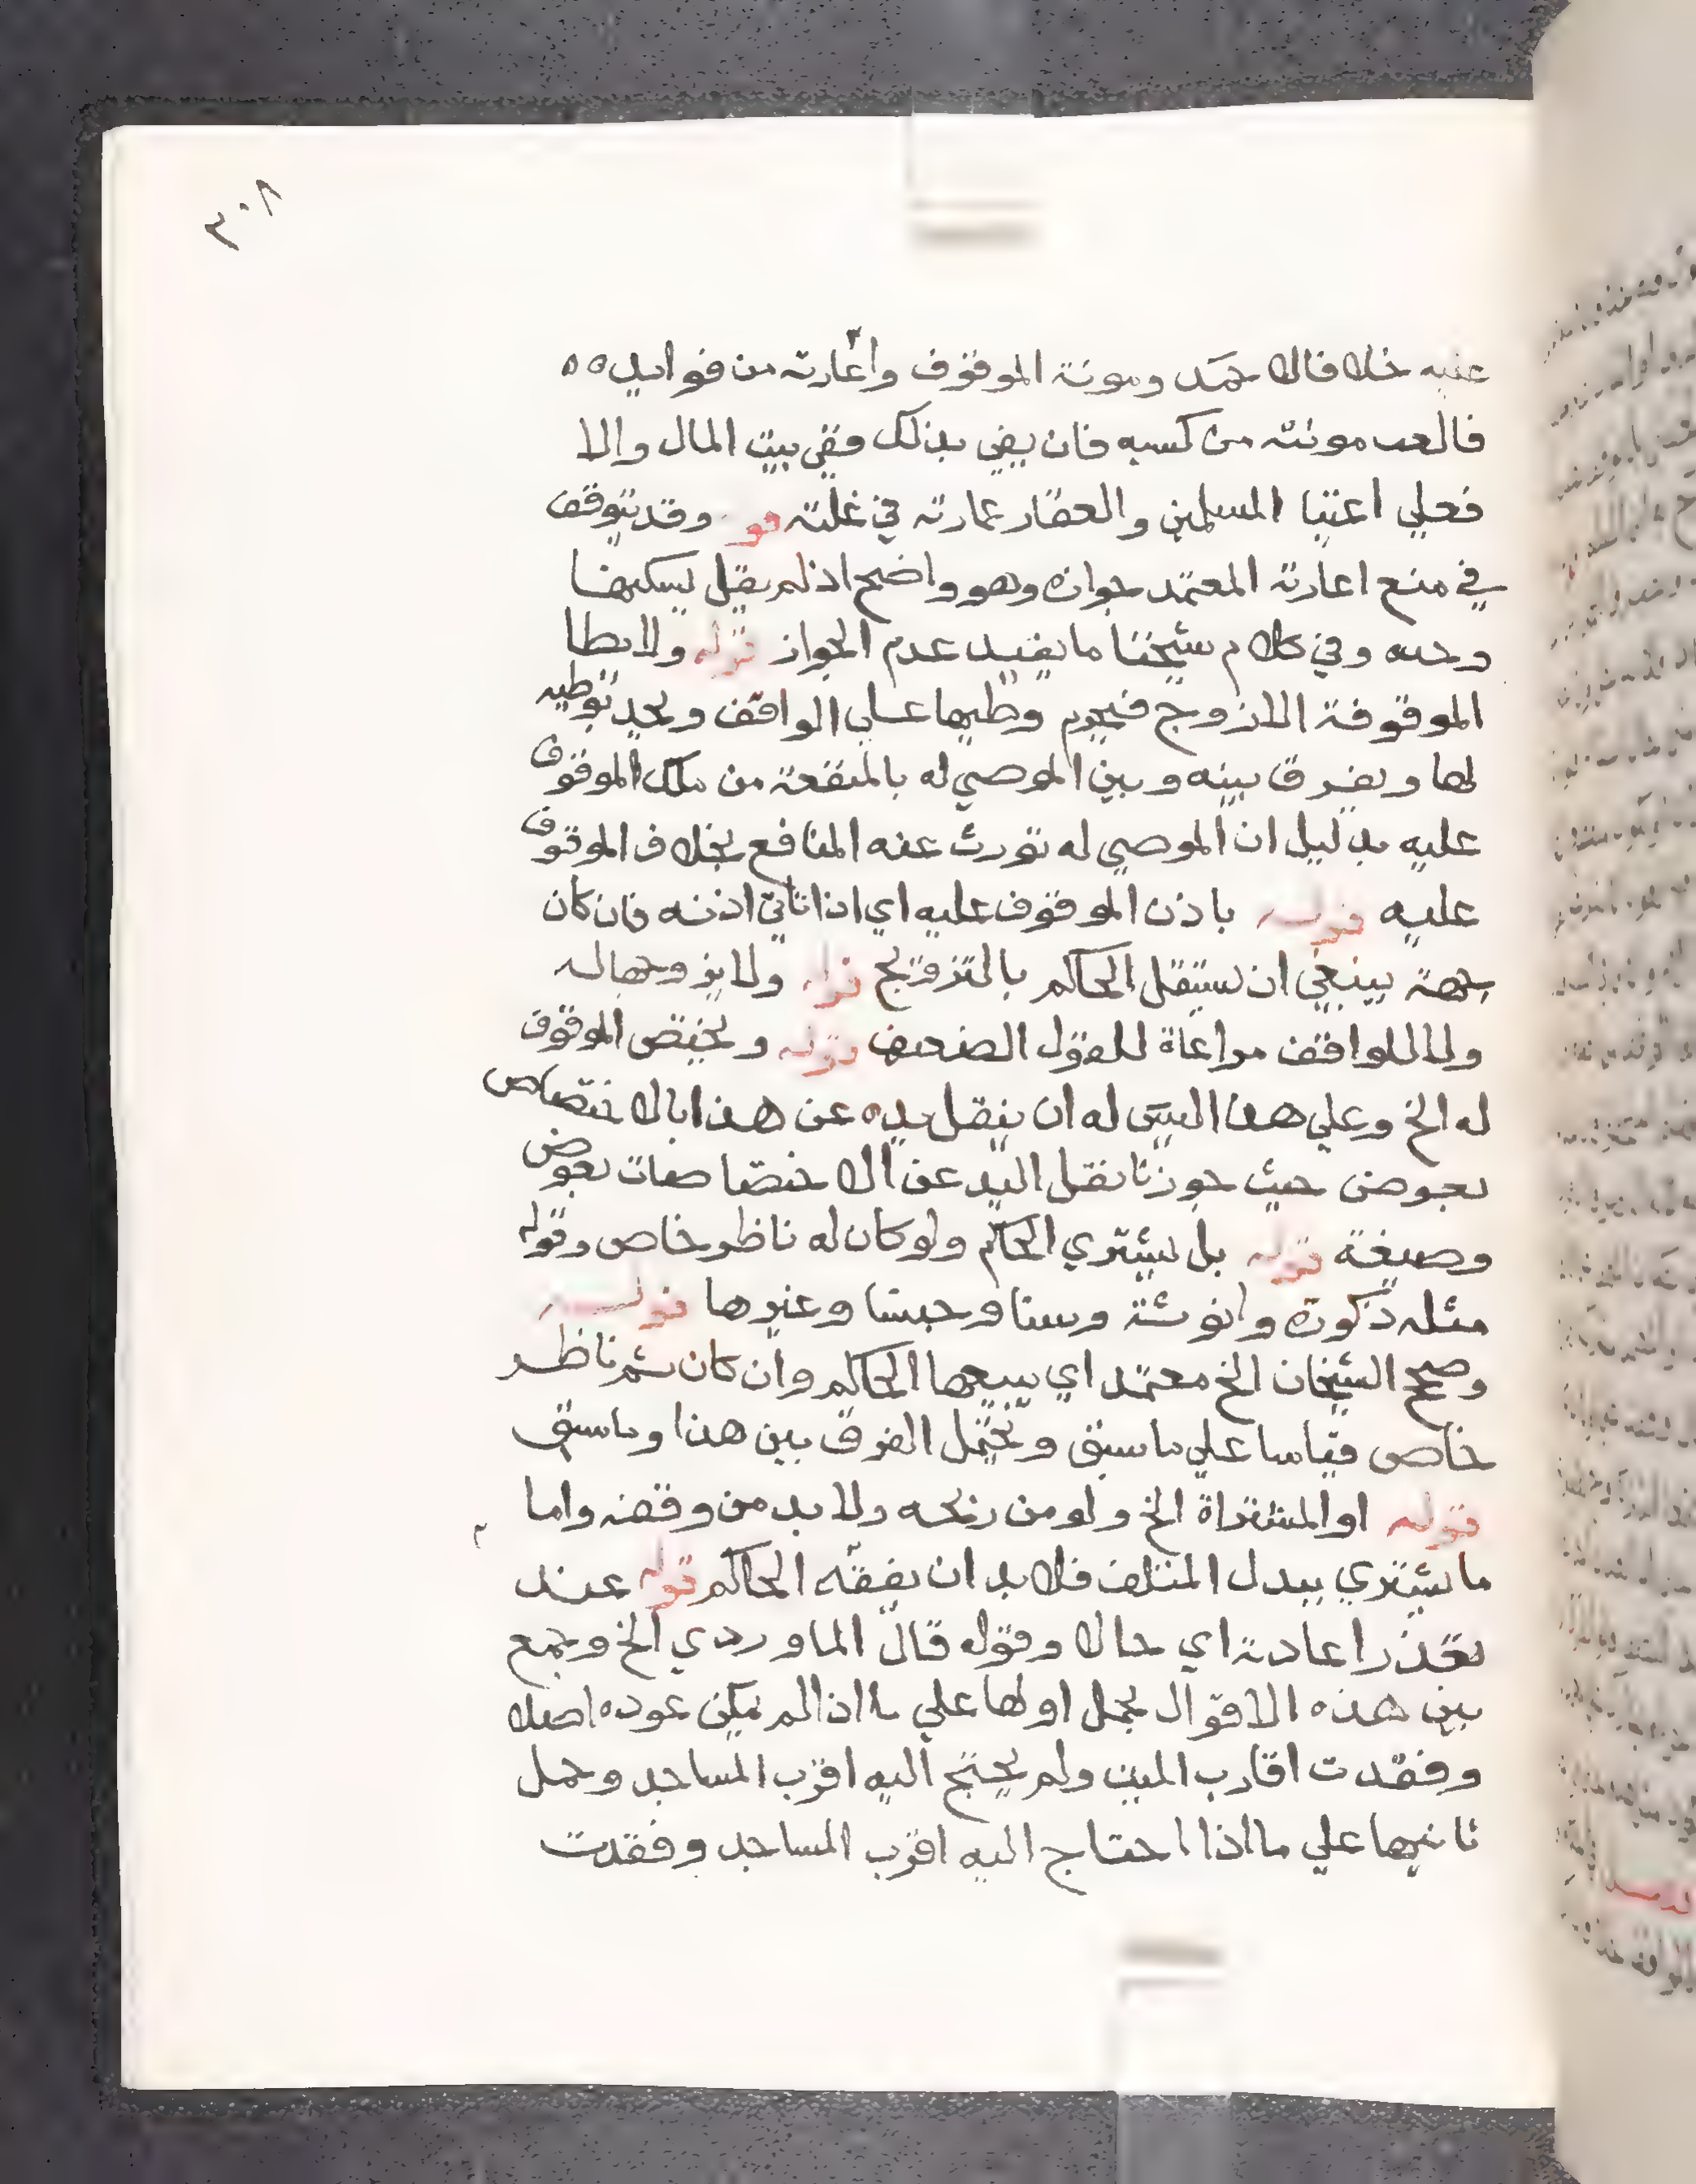 ٣٠٨
عليه خلافا لمحمد ومونة الموقوف واعارته من فوايده
فالعبد مونته من كسبه فان بقي بذلك وفقي بيت المال والا
فعلي اعنيا المسلمين والعقار عمارته في غلته قو وقد يتوقف
في منع اعارته المعتمد جوازه وهو واضح اذ لم يقل ليسكنها
وحده وفي كلام شيخنا ما يفيد عدم الجواز قوله ولا يطا
الموقوفة الا زوج فيحرم وطيها علي الواقف ويحد بوطيه
لها ويفرق بينه وبين الموصي له بالمنفعة من ملك الموقوف
عليه بدليل ان الموصي له تورث عنه المنافع بخلاف الموقوف
عليه قوله باذن الموقوف عليه اي اذا تاتي اذنه فان كان
جهة ينبغي ان يستقل الحاكم بالتزويج قوله ولا يزوجها له
ولا للواقف مراعاة للقول الضعيف قوله ويختص الموقوف
له الخ وعلي هذا اليس له ان ينقل يده عن هذا الاختصاص
بعوض حيث جوزنا نقل اليد عن الاختصاصات بعوض
وصيغة قوله بل يشتري الحاكم ولو كان له ناظر خاص وقوله
مثله ذكورة وانوثة وسنا وجنسا وغيرها قوله
وصحح الشيخان الخ معتمد اي يبيعها الحاكم وان كان ثم ناظر
خاص قياسا علي ما سبق ويحتمل الفرق بين هذا وما سبق
قوله او المشتراة الخ ولو من ريعه ولا بد من وقفه واما
ما يشتري ببدل المتلف فلا بد ان يقفه الحاكم قوله عند
تعذر اعادته اي حالا وقوله قال الماوردي الخ وجمع
بين هذه الاقوال بحمل اولها علي ما اذا لم يمكن عوده اصلا
وفقدت اقارب الميت ولم يحتج اليه اقرب المساجد وحمل
ثانيها علي ما اذا احتاج اليه اقرب المساجد وفقدت